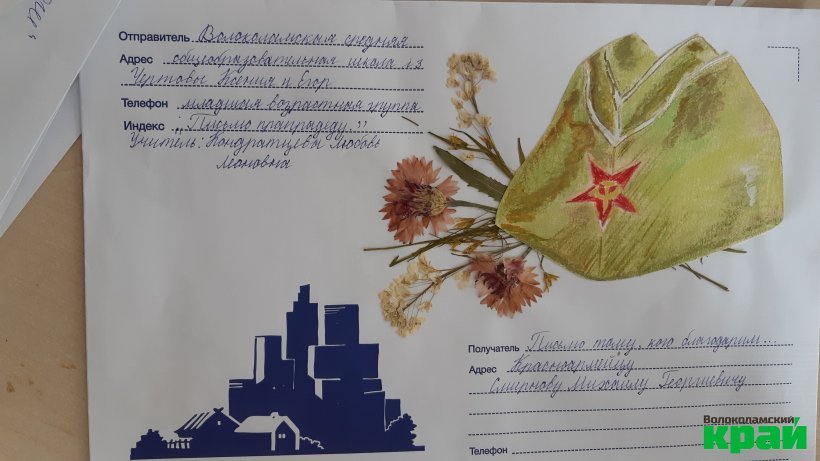 Отправитель Волоколамская средняя
Адрес общеобразовательная школа №3
Чертовы Ксения и Егор
Телефон младшая возрастная группа
Индекс „Письмо прапрадеду."
Учитель: Кондратцева Любовь
Леоновна
Получатель Письмо тому, кого благодарим...
Адрес Красноармейцу
Смирнову Михаилу Георгиевичу
Телефон
Волоколамский
край